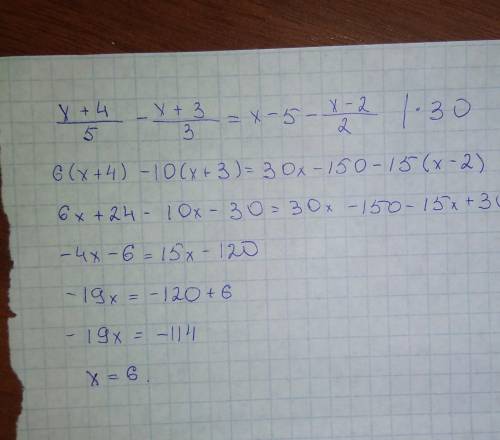 (x + 4)/5 - (x + 3)/3 = x - 5 - (x - 2)/2 | · 30
6(x+4) - 10(x+3) = 30x - 150 - 15(x-2)
6x + 24 - 10x - 30 = 30x - 150 - 15x + 30
-4x - 6 = 15x - 120
-19x = -120 + 6
-19x = -114
x = 6.